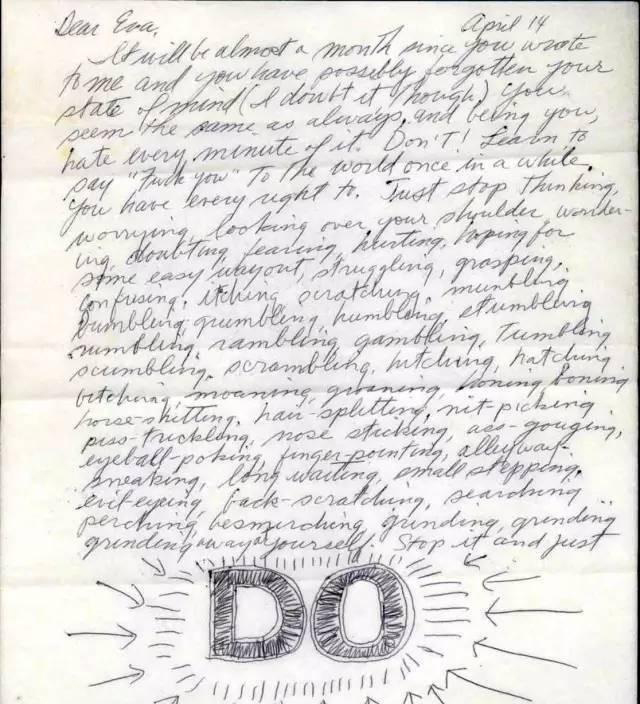 Dear Eva, April 14
It will be almost a month since you wrote
to me and you have possibly forgotten your
state of mind (I doubt it though). You
seem the same as always, and being you,
hate every minute of it. Don't! Learn to
say "Fuck You" to the world once in a while.
You have every right to. Just stop thinking,
worrying, looking over your shoulder, wonder-
ing, doubting, fearing, hurting, hoping for
some easy way out, struggling, grasping,
confusing, itching, scratching, mumbling,
bumbling, grumbling, humbling, stumbling,
numbling, rambling, gambling, tumbling,
scumbling, scrambling, hitching, hatching,
bitching, moaning, groaning, honing, boning,
horse-shitting, hair-splitting, nit-picking,
piss-trickling, nose sticking, ass-gouging,
eyeball-poking, finger-pointing, alleyway-
sneaking, long waiting, small stepping,
evil-eyeing, back-scratching, searching,
perching, besmirching, grinding, grinding,
grinding away at yourself. Stop it and just
DO